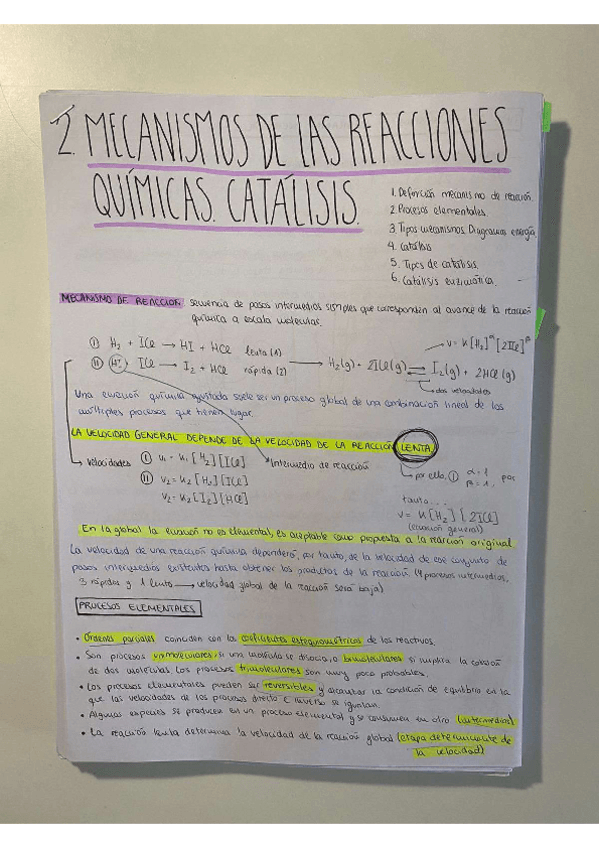 2. MECANISMOS DE LAS REACCIONES
QUÍMICAS. CATÁLISIS.
1. Definición mecanismo de reacción.
2. Procesos elementales.
3 Tipos mecanismos. Diagramas energía.
4. Catálisis
5. Tipos de catálisis.
6. Catálisis enzimática.
MECANISMO DE REACCIÓN: secuencia de pasos intermedios simples que corresponden al avance de la reacción
química a escala molecular.
I H2 + ICl → HI + HCl lenta (1)
II HI ICl → I2 + HCl rápida (2)
→ H2(g) + 2ICl(g) ⇌ I2(g) + 2HCl(g)
v = k[H2]^α [2ICl]^β
dos velocidades
Una ecuación química ajustada suele ser un proceso global de una combinación lineal de los
múltiples procesos que tienen lugar.
LA VELOCIDAD GENERAL DEPENDE DE LA VELOCIDAD DE LA REACCIÓN LENTA.
Velocidades I v1 = k1 [H2][ICl]
II v2 = k2 [HI][ICl]
v2 = k2 [I2][HCl]
Intermedio de reacción
por ello, I α=1 β=1, por
tanto...
v = k[H2][2ICl]
(ecuación general)
En la global la ecuación no es elemental, es aceptable como propuesta a la reacción original
La velocidad de una reacción química dependerá, por tanto, de la velocidad de ese conjunto de
pasos intermedios existentes hasta obtener los productos de la reacción (4 procesos intermedios,
3 rápidos y 1 lento → velocidad global de la reacción será baja)
PROCESOS ELEMENTALES
• Órdenes parciales coinciden con los coeficientes estequiométricos de los reactivos.
• Son procesos unimoleculares, si una molécula se disocia, o bimoleculares si implica la colisión
de dos moléculas. Los procesos trimoleculares son muy poco probables.
• Los procesos elementales pueden ser reversibles y alcanzar la condición de equilibrio en la
que las velocidades de los procesos directo e inverso se igualan.
• Algunas especies se producen en un proceso elemental y se consumen en otro (intermedios)
• La reacción lenta determina la velocidad de la reacción global (etapa determinante de
la velocidad)